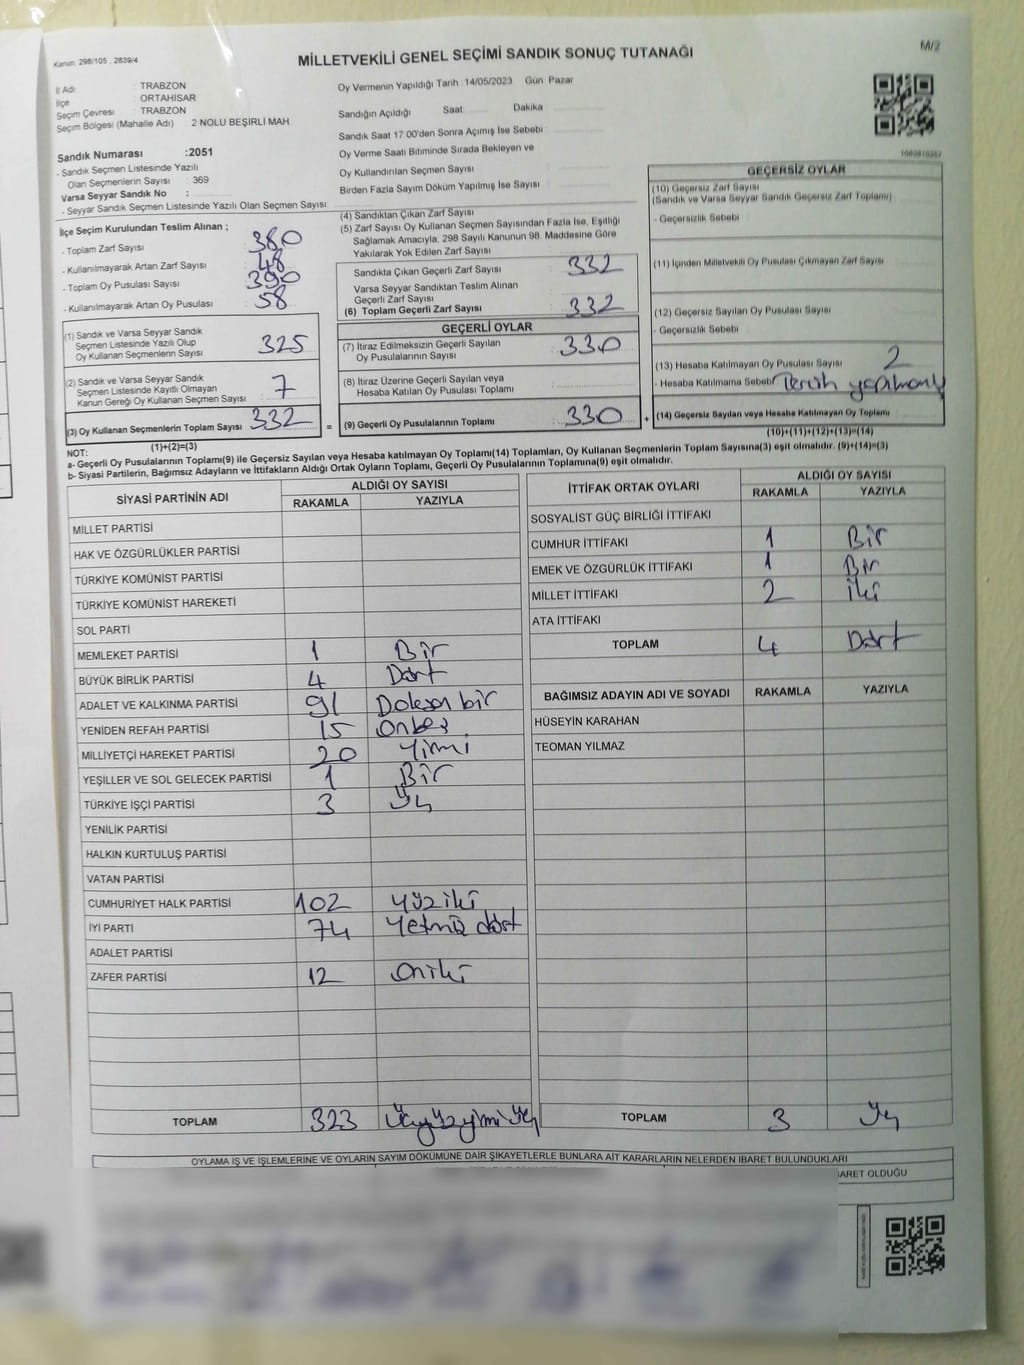 Kanun. 298/105 , 2839/4
MİLLETVEKİLİ GENEL SEÇİMİ SANDIK SONUÇ TUTANAĞI
M/2
İl Adı : TRABZON
İlçe : ORTAHİSAR
Seçim Çevresi : TRABZON
Seçim Bölgesi (Mahalle Adı) : 2 NOLU BEŞİRLİ MAH
Sandık Numarası :2051
- Sandık Seçmen Listesinde Yazılı
Olan Seçmenlerin Sayısı : 369
Varsa Seyyar Sandık No :
- Seyyar Sandık Seçmen Listesinde Yazılı Olan Seçmen Sayısı:
Oy Vermenin Yapıldığı Tarih :14/05/2023 Gün: Pazar
Sandığın Açıldığı Saat Dakika
Sandık Saat 17:00'den Sonra Açımış İse Sebebi
Oy Verme Saati Bitiminde Sırada Bekleyen ve
Oy Kullandırılan Seçmen Sayısı
Birden Fazla Sayım Döküm Yapılmış İse Sayısı
İlçe Seçim Kurulundan Teslim Alınan ;
- Toplam Zarf Sayısı 380
- Kullanılmayarak Artan Zarf Sayısı 48
- Toplam Oy Pusulası Sayısı 390
- Kullanılmayarak Artan Oy Pusulası 58
(1) Sandık ve Varsa Seyyar Sandık
Seçmen Listesinde Yazılı Olup
Oy Kullanan Seçmenlerin Sayısı 325
(2) Sandık ve Varsa Seyyar Sandık
Seçmen Listesinde Kayıtlı Olmayan
Kanun Gereği Oy Kullanan Seçmen Sayısı 7
(3) Oy Kullanan Seçmenlerin Toplam Sayısı 332
(1)+(2)=(3)
(4) Sandıktan Çıkan Zarf Sayısı
(5) Zarf Sayısı Oy Kullanan Seçmen Sayısından Fazla İse, Eşitliği
Sağlamak Amacıyla, 298 Sayılı Kanunun 98. Maddesine Göre
Yakılarak Yok Edilen Zarf Sayısı
Sandıkta Çıkan Geçerli Zarf Sayısı 332
Varsa Seyyar Sandıktan Teslim Alınan
Geçerli Zarf Sayısı
(6) Toplam Geçerli Zarf Sayısı 332
GEÇERLİ OYLAR
(7) İtiraz Edilmeksizin Geçerli Sayılan
Oy Pusulalarının Sayısı 330
(8) İtiraz Üzerine Geçerli Sayılan veya
Hesaba Katılan Oy Pusulası Toplamı
= (9) Geçerli Oy Pusulalarının Toplamı 330 +
GEÇERSİZ OYLAR
(10) Geçersiz Zarf Sayısı
(Sandık ve Varsa Seyyar Sandık Geçersiz Zarf Toplamı)
- Geçersizlik Sebebi
(11) İçinden Milletvekili Oy Pusulası Çıkmayan Zarf Sayısı
(12) Geçersiz Sayılan Oy Pusulası Sayısı
- Geçersizlik Sebebi
(13) Hesaba Katılmayan Oy Pusulası Sayısı 2
- Hesaba Katılmama Sebebi Tercih
(14) Geçersiz Sayılan veya Hesaba Katılmayan Oy Toplamı
(10)+(11)+(12)+(13)=(14)
NOT:
a- Geçerli Oy Pusulalarının Toplamı(9) ile Geçersiz Sayılan veya Hesaba katılmayan Oy Toplamı(14) Toplamları, Oy Kullanan Seçmenlerin Toplam Sayısına(3) eşit olmalıdır. (9)+(14)=(3)
b- Siyasi Partilerin, Bağımsız Adayların ve İttifakların Aldığı Ortak Oyların Toplamı, Geçerli Oy Pusulalarının Toplamına(9) eşit olmalıdır.
SİYASİ PARTİNİN ADI ALDIĞI OY SAYISI
RAKAMLA YAZIYLA
MİLLET PARTİSİ
HAK VE ÖZGÜRLÜKLER PARTİSİ
TÜRKİYE KOMÜNİST PARTİSİ
TÜRKİYE KOMÜNİST HAREKETİ
SOL PARTİ
MEMLEKET PARTİSİ 1 Bir
BÜYÜK BİRLİK PARTİSİ 4 Dört
ADALET VE KALKINMA PARTİSİ 91 Doksan bir
YENİDEN REFAH PARTİSİ 15 Onbeş
MİLLİYETÇİ HAREKET PARTİSİ 20 Yirmi
YEŞİLLER VE SOL GELECEK PARTİSİ 1 Bir
TÜRKİYE İŞÇİ PARTİSİ 3 Üç
YENİLİK PARTİSİ
HALKIN KURTULUŞ PARTİSİ
VATAN PARTİSİ
CUMHURİYET HALK PARTİSİ 102 Yüziki
İYİ PARTİ 74 Yetmiş dört
ADALET PARTİSİ
ZAFER PARTİSİ 12 Oniki
TOPLAM 323 Üçyüzyirmi üç
İTTİFAK ORTAK OYLARI ALDIĞI OY SAYISI
RAKAMLA YAZIYLA
SOSYALİST GÜÇ BİRLİĞİ İTTİFAKI
CUMHUR İTTİFAKI 1 Bir
EMEK VE ÖZGÜRLÜK İTTİFAKI 1 Bir
MİLLET İTTİFAKI 2 İki
ATA İTTİFAKI
TOPLAM 4 Dört
BAĞIMSIZ ADAYIN ADI VE SOYADI RAKAMLA YAZIYLA
HÜSEYİN KARAHAN
TEOMAN YILMAZ
TOPLAM 3 Üç
OYLAMA İŞ VE İŞLEMLERİNE VE OYLARIN SAYIM DÖKÜMÜNE DAİR ŞİKAYETLERLE BUNLARA AİT KARARLARIN NELERDEN İBARET BULUNDUKLARI
BARET OLDUĞU